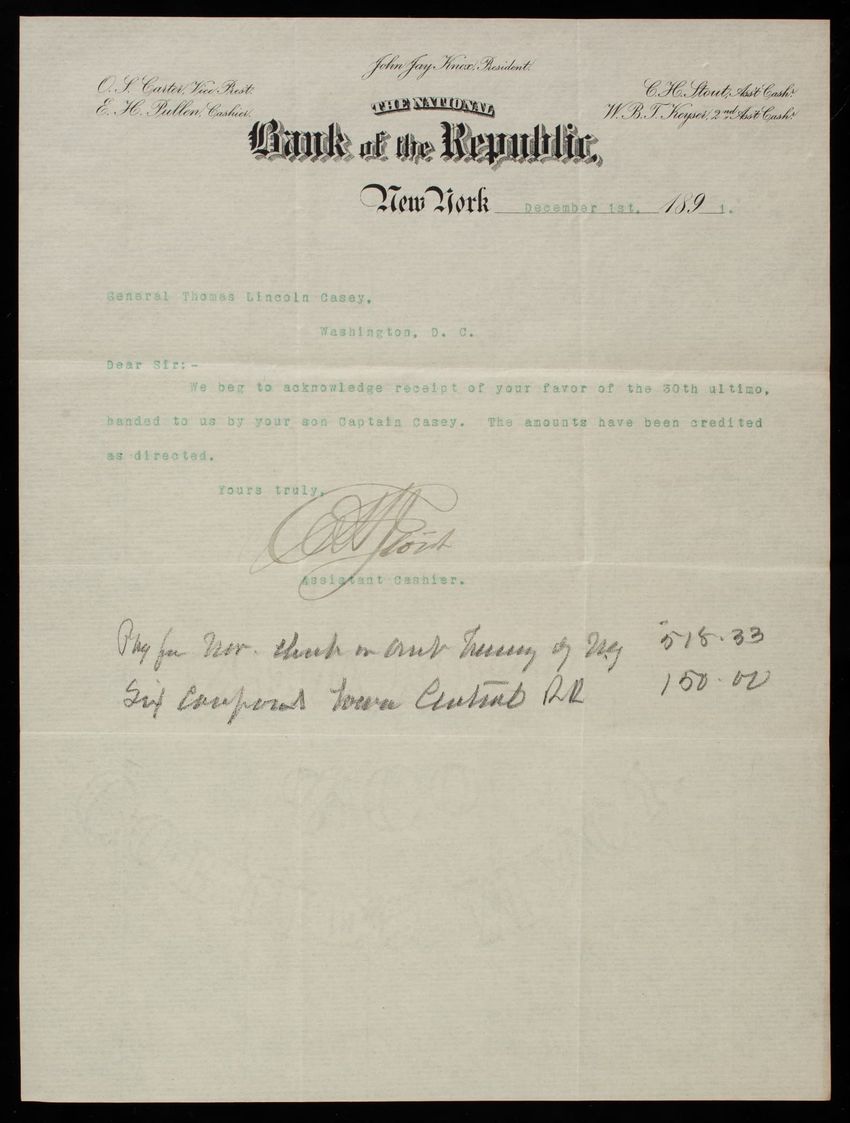 John Jay Knox, President.
O. S. Carter, Vice Prest.
E. H. Pullen, Cashier.
C. H. Stout, Ass't Cashr.
W. B. T. Keyser, 2nd Ass't Cashr.
THE NATIONAL
Bank of the Republic,
New York December 1st, 1891.
General Thomas Lincoln Casey,
Washington, D. C.
Dear Sir:-
We beg to acknowledge receipt of your favor of the 30th ultimo,
handed to us by your son Captain Casey. The amounts have been credited
as directed.
Yours truly,
C H Stout
Assistant Cashier.
Pay for Nov. check on Treasy of N.Y 518.33
Six coupons Iowa Central RR 150.00